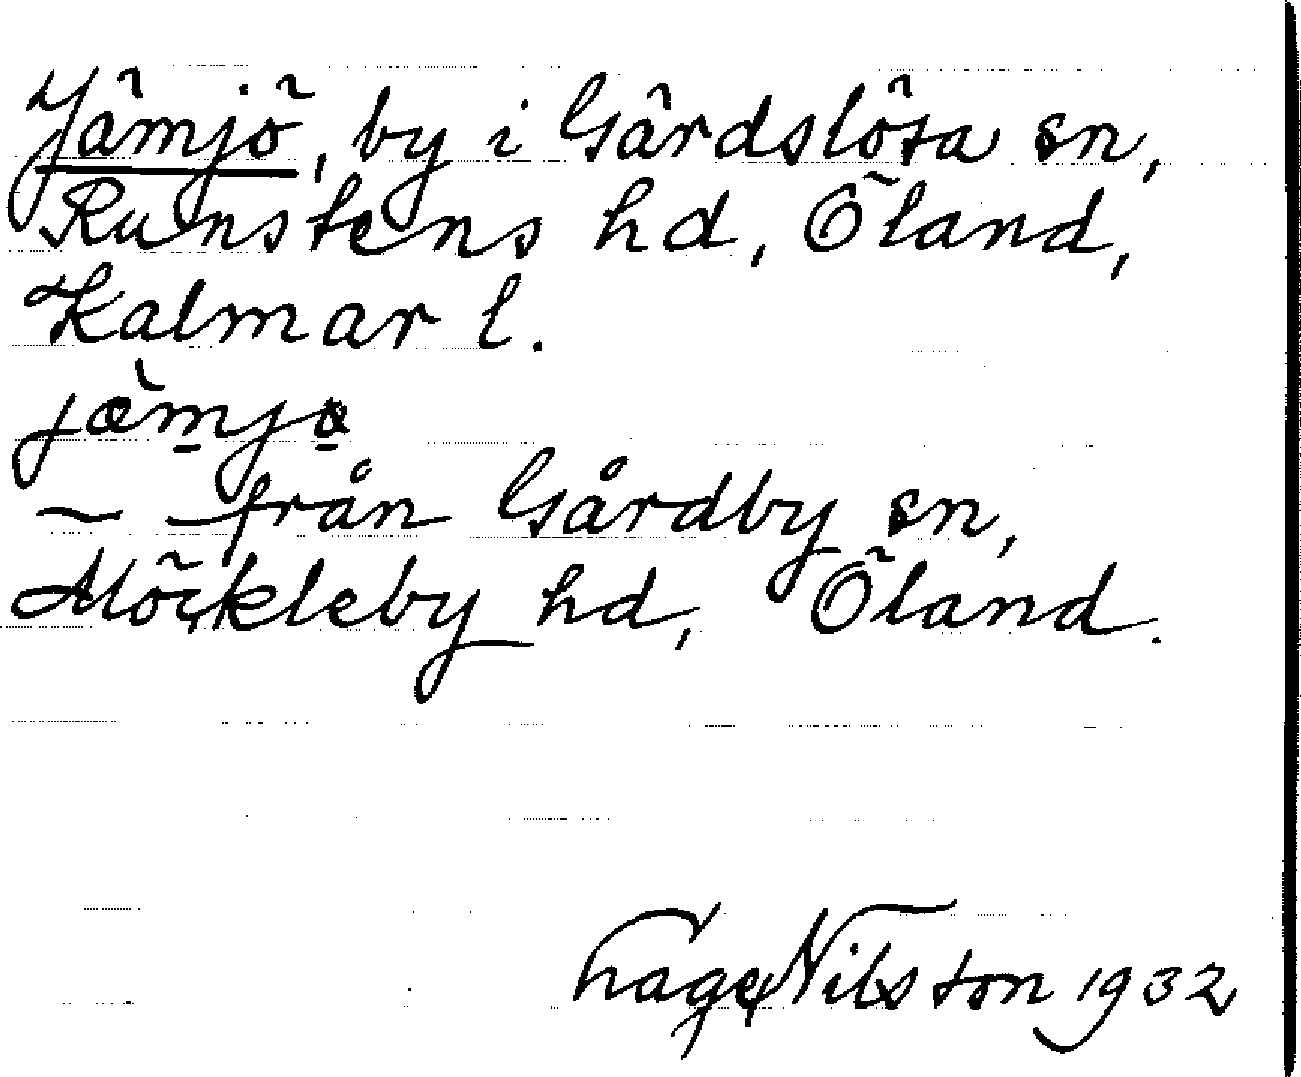 Jämjö, by i Gärdslösa sn,
Runstens hd, Öland,
Kalmar l.
jæ̀mjø
— från Gårdby sn,
Möckleby hd, Öland.
Tage Nilsson 1932